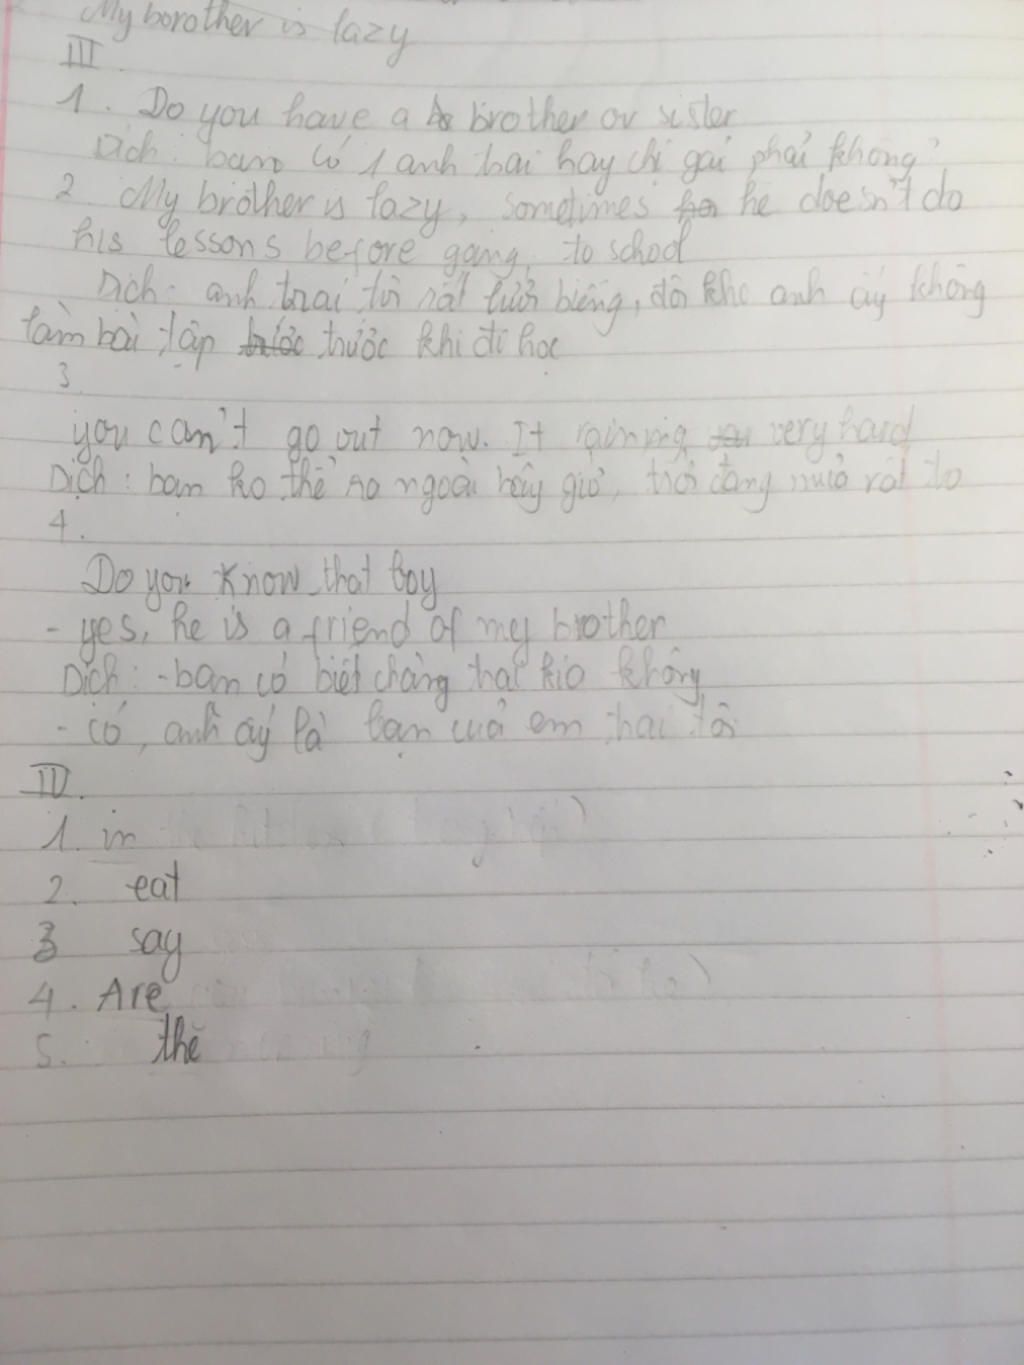 My borother is lazy
III
1. Do you have a brother or sister
Dịch: bạn có 1 anh trai hay chị gái phải không?
2. My brother is lazy, sometimes he doesn't do
his lessons before going to school
Dịch: anh trai tôi rất lười biếng, đôi khi anh ấy không
làm bài tập trước khi đi học
3.
you can't go out now. It raining very hard
Dịch: bạn ko thể ra ngoài bây giờ, trời đang mưa rất to
4.
Do you know that boy
- yes, he is a friend of my brother
Dịch: - bạn có biết chàng trai kia không
- có, anh ấy là bạn của em trai tôi
IV.
1. in
2. eat
3 say
4. Are
5. the